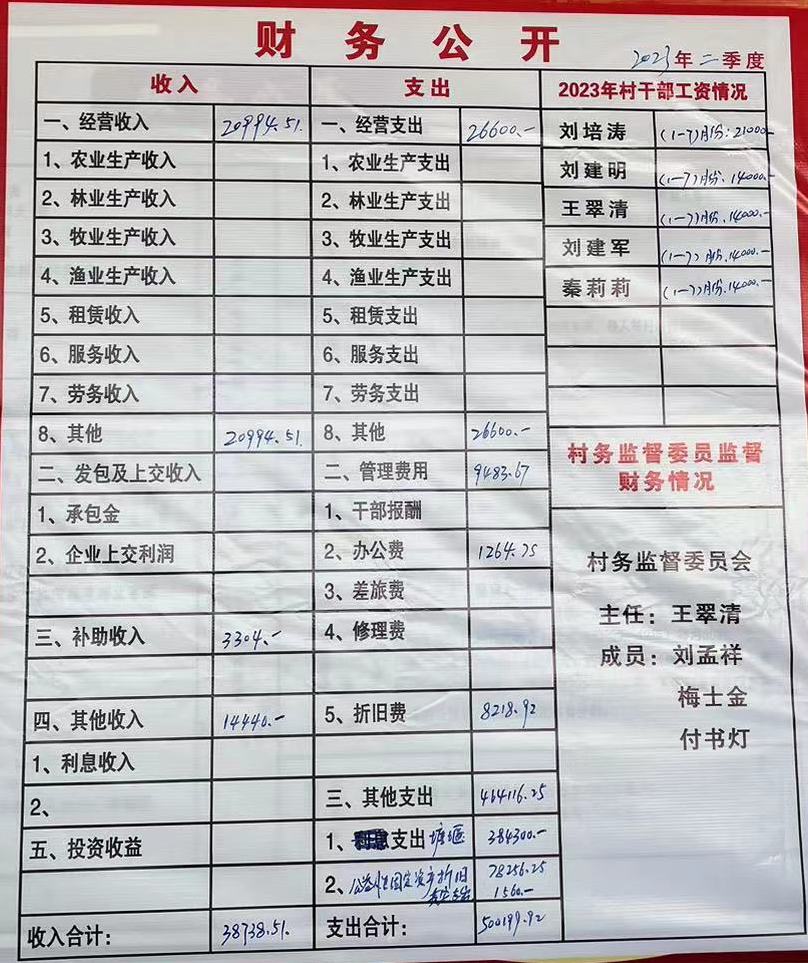 财务公开
2023年二季度
收入 支出 2023年村干部工资情况
一、经营收入 20994.51. 一、经营支出 26600.— 刘培涛 (1—7)月份:21000—
1、农业生产收入 1、农业生产支出 刘建明 (1—7)月份.14000.—
2、林业生产收入 2、林业生产支出 王翠清 (1—7)月份.14000.—
3、牧业生产收入 3、牧业生产支出 刘建军 (1—7)月份.14000.—
4、渔业生产收入 4、渔业生产支出 秦莉莉 (1—7)月份.14000.—
5、租赁收入 5、租赁支出
6、服务收入 6、服务支出
7、劳务收入 7、劳务支出
8、其他 20994.51. 8、其他 26600.—
二、发包及上交收入 二、管理费用 9483.67
1、承包金 1、干部报酬
2、企业上交利润 2、办公费 1264.75
3、差旅费
三、补助收入 3304.— 4、修理费
四、其他收入 14440.— 5、折旧费 8218.92
1、利息收入
2、 三、其他支出 464116.25
五、投资收益 1、支出 塘堰 384300.—
2、公益性固定资产折旧 78256.25
1560.—
收入合计: 38738.51. 支出合计: 500199.92
村务监督委员监督
财务情况
村务监督委员会
主任:王翠清
成员:刘孟祥
梅士金
付书灯